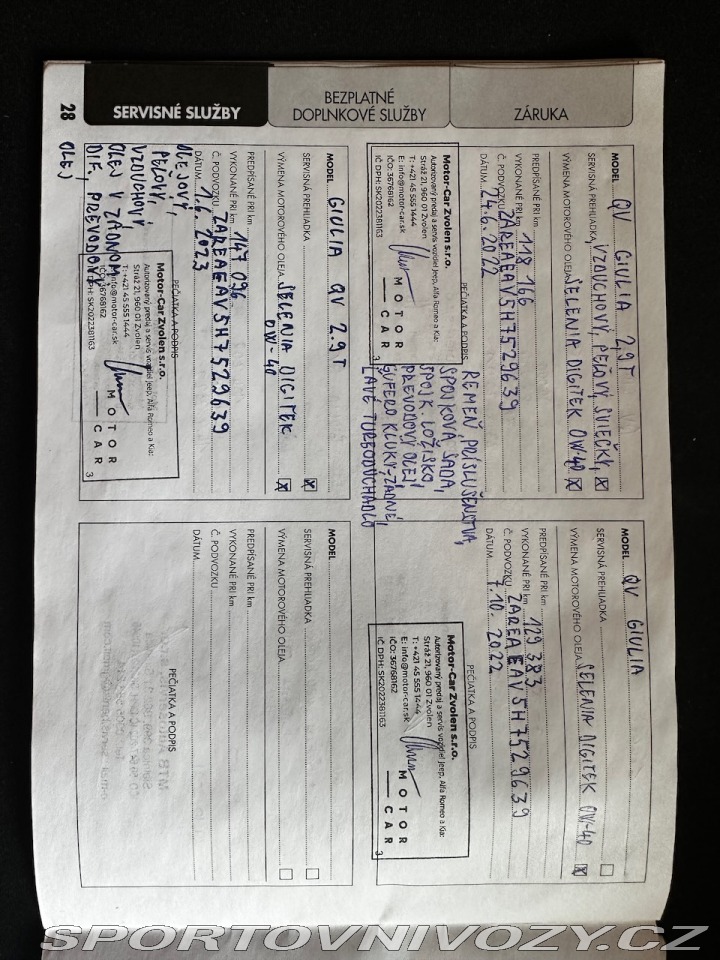 28
SERVISNÉ SLUŽBY
BEZPLATNÉ
DOPLNKOVÉ SLUŽBY
ZÁRUKA
MODEL QV GIULIA 2.9T
SERVISNÁ PREHLIADKA VZDUCHOVÝ, PEĽOVÝ, SVIEČKY, X
VÝMENA MOTOROVÉHO OLEJA SELENIA DIGITEK 0W-40 X
PREDPÍSANÉ PRI km
VYKONANÉ PRI km 118 166
Č. PODVOZKU ZAREAEAV5H7529639
DÁTUM 24.6.2022
PEČIATKA A PODPIS
Motor-Car Zvolen s.r.o.
Autorizovaný predaj a servis vozidiel Jeep, Alfa Romeo a Kia:
Stráž 21, 960 01 Zvolen
T: +421 45 555 1444
E: info@motor-car.sk
IČO: 36768162
IČ DPH: SK2022381163
MOTOR
CAR
3
REMEŇ PRÍSLUŠENSTVA,
SPOJKOVÁ SADA,
SPOJK. LOŽISKO,
PREVODOVÝ OLEJ,
GUFERO KĽUKY-ZADNÉ,
ĽAVÉ TURBODÚCHADLO
MODEL QV GIULIA
SERVISNÁ PREHLIADKA
VÝMENA MOTOROVÉHO OLEJA SELENIA DIGITEK 0W-40 X
PREDPÍSANÉ PRI km
VYKONANÉ PRI km 129 383
Č. PODVOZKU ZAREAEAV5H7529639
DÁTUM 7.10.2022
PEČIATKA A PODPIS
Motor-Car Zvolen s.r.o.
Autorizovaný predaj a servis vozidiel Jeep, Alfa Romeo a Kia:
Stráž 21, 960 01 Zvolen
T: +421 45 555 1444
E: info@motor-car.sk
IČO: 36768162
IČ DPH: SK2022381163
MOTOR
CAR
3
MODEL GIULIA QV 2.9T
SERVISNÁ PREHLIADKA X
VÝMENA MOTOROVÉHO OLEJA SELENIA DIGITEK X
0W-40
PREDPÍSANÉ PRI km
VYKONANÉ PRI km 147 096
Č. PODVOZKU ZAREAEAV5H7529639
DÁTUM 1.6.2023
OLEJOVÝ,
PEĽOVÝ,
VZDUCHOVÝ,
OLEJ V ZADNOM
DIF, PREVODOVÝ
OLEJ
PEČIATKA A PODPIS
Motor-Car Zvolen s.r.o.
Autorizovaný predaj a servis vozidiel Jeep, Alfa Romeo a Kia:
Stráž 21, 960 01 Zvolen
T: +421 45 555 1444
info@motor-car.sk
36768162
DPH: SK2022381163
MOTOR
CAR
3
MODEL
SERVISNÁ PREHLIADKA
VÝMENA MOTOROVÉHO OLEJA
PREDPÍSANÉ PRI km
VYKONANÉ PRI km
Č. PODVOZKU
DÁTUM
PEČIATKA A PODPIS
SPORTOVNIVOZY.CZ